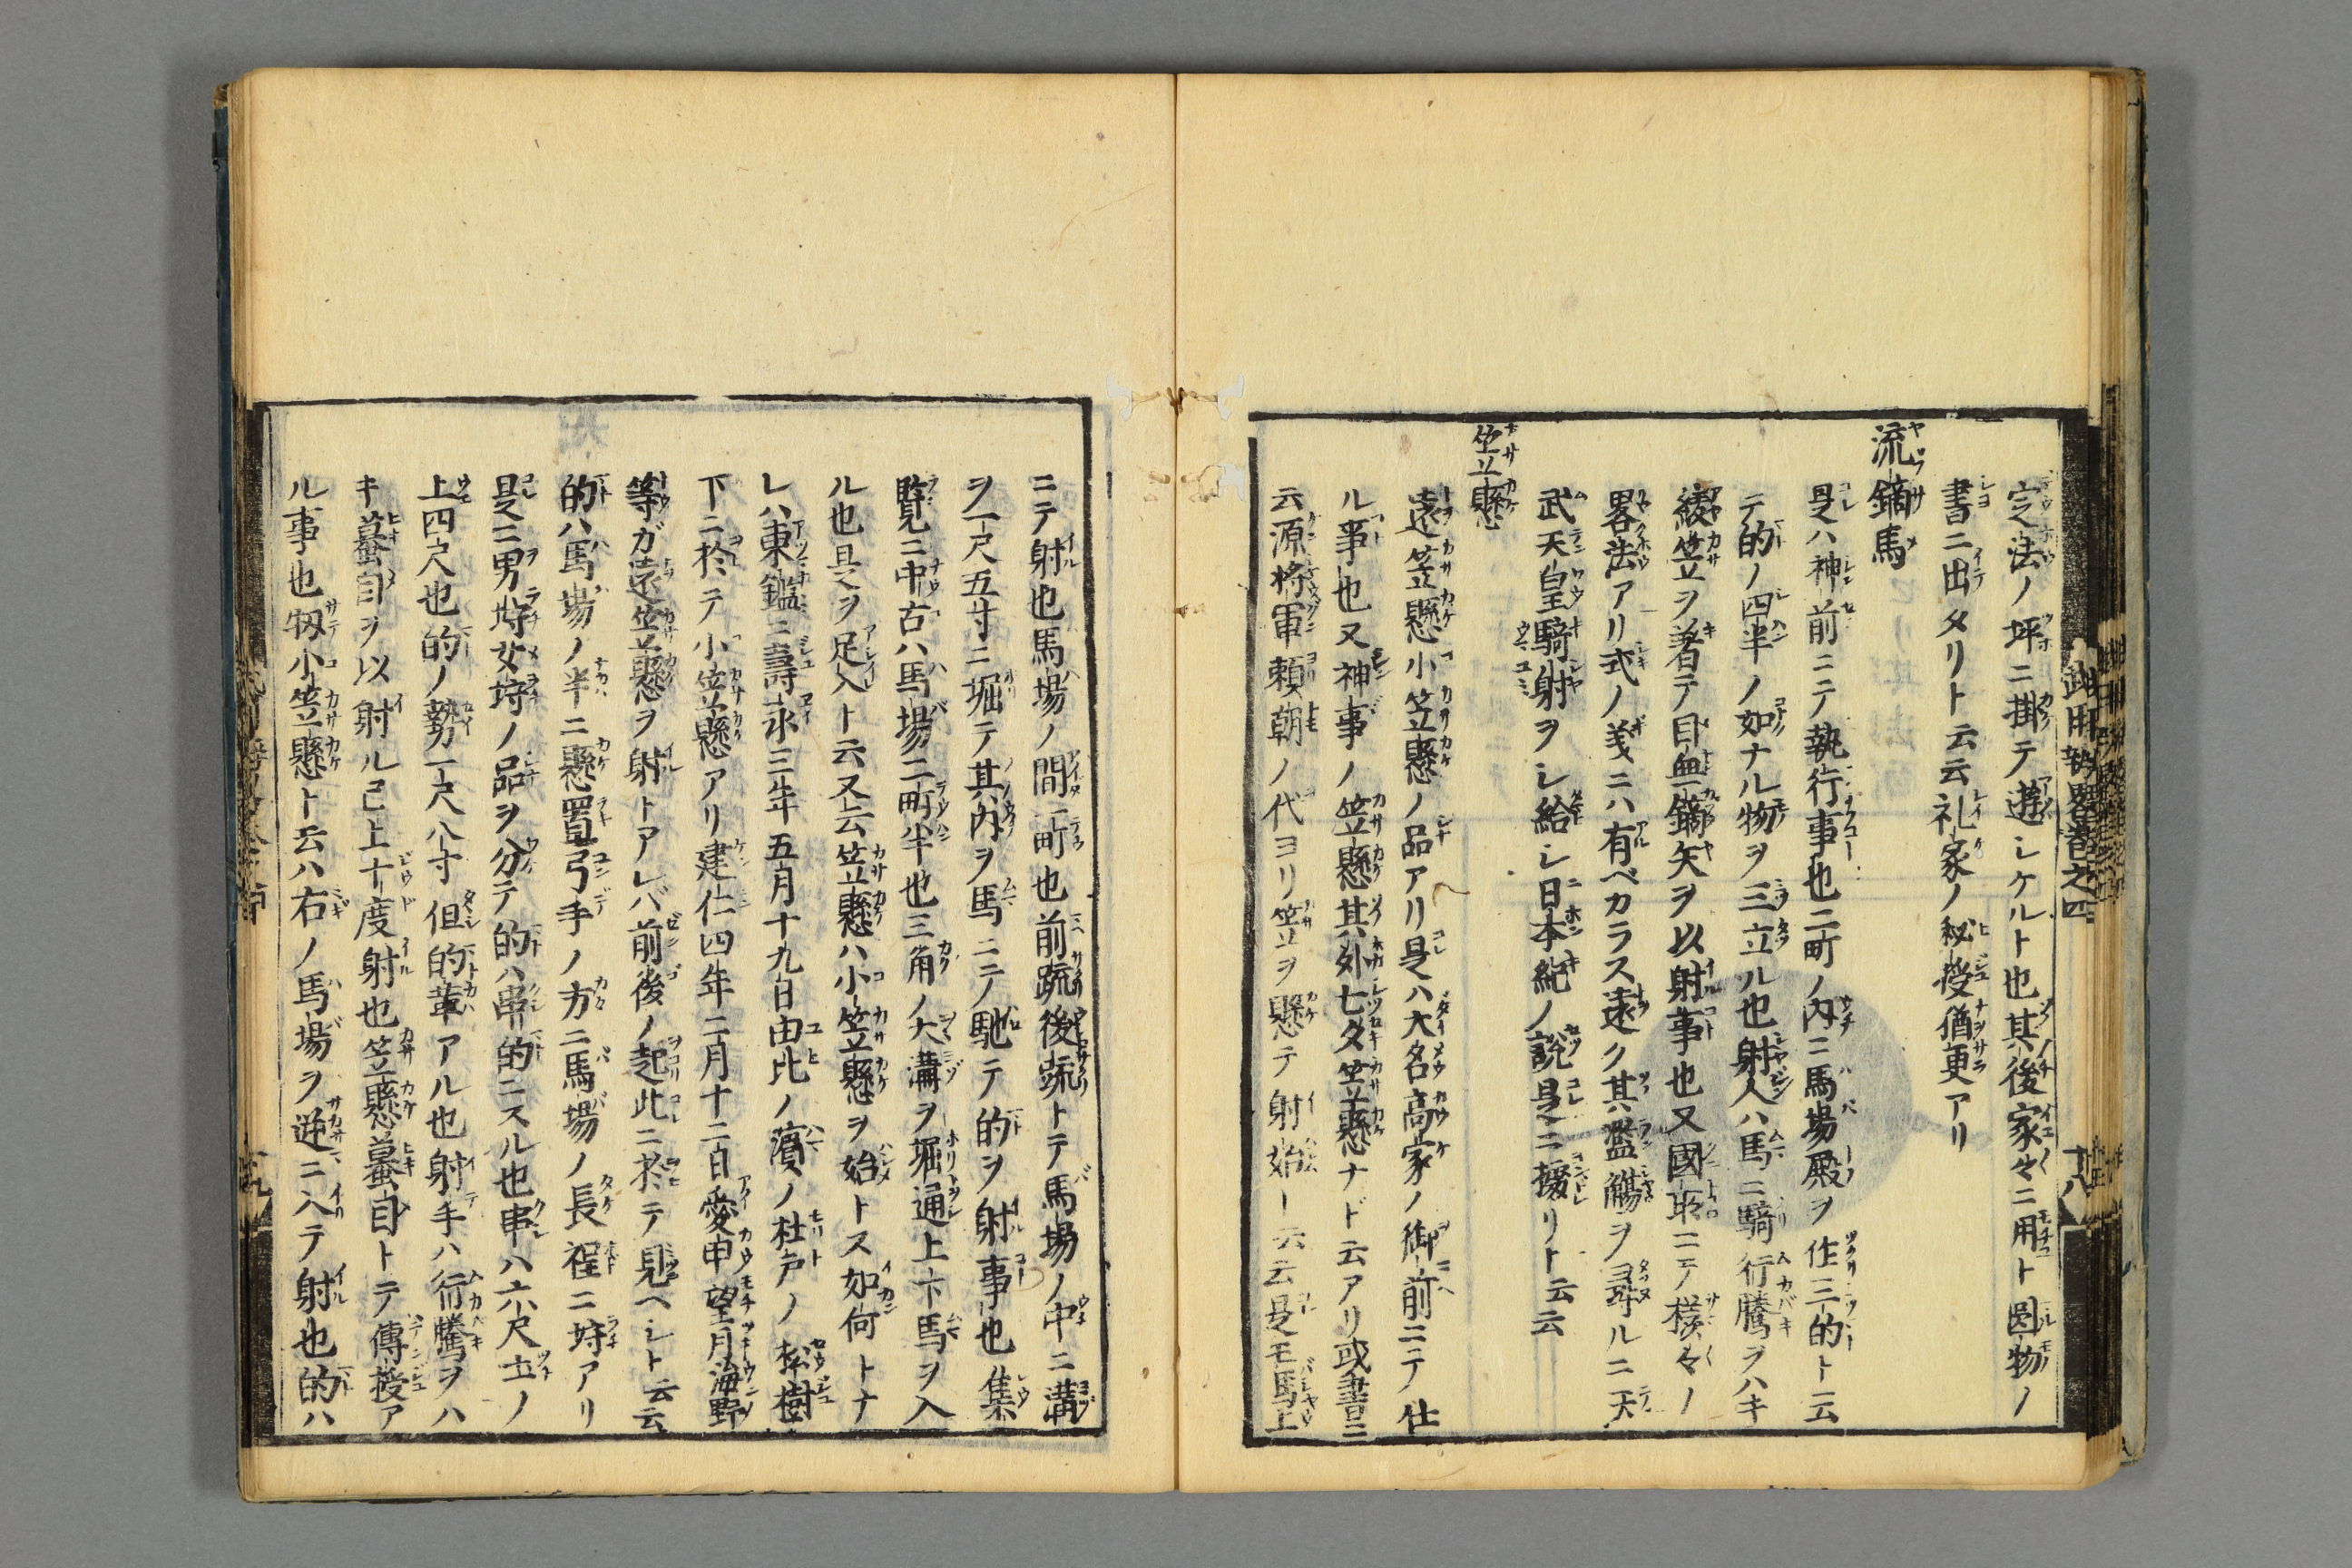 定法ノ坪ニ掛テ遊シケルト也其後家々ニ用ト圓物ノ
書ニ出タリト云云礼家ノ秘授猶更アリ
流鏑馬
是ハ神前ニテ執行事也二町ノ内ニ馬場殿ヲ作三的ト云
テ的ノ四半ノ如ナル物ヲ三立ル也射人ハ馬ニ騎行騰ヲハキ
綾笠ヲ着テ目無鏑矢ヲ以射事也又國取ニテ様々ノ
畧法アリ式ノ義ニハ有ベカラス遠ク其濫觴ヲ尋ルニ天
武天皇騎射ヲシ給シ日本紀ノ説是ニ據リト云云
笠懸
遠笠懸小笠懸ノ品アリ是ハ大名高家ノ御前ニテ仕
ル事也又神事ノ笠懸其外七夕笠懸ナド云アリ或書ニ
云源将軍頼朝ノ代ヨリ笠ヲ懸テ射始ト云云是モ馬上
ニテ射也馬場ノ間一町也前疏後疏トテ馬場ノ中ニ溝
ヲ一尺五寸ニ堀テ其内ヲ馬ニテ馳テ的ヲ射事也集
覧ニ中古ハ馬場二町半也三角ノ大溝ヲ堀通上下馬ヲ入
ル也是ヲ足入ト云又云笠懸ハ小笠懸ヲ始トス如何トナ
レハ東鑑ニ壽永三年五月十九日由比ノ濱ノ杜戸ノ松樹
下ニ於テ小笠懸アリ建仁四年二月十二日愛甲望月海野
等ガ遠笠懸ヲ射トアレバ前後ノ起此ニ於テ見ヘシト云云
的ハ馬場ノ半ニ懸置弓手ノ方ニ馬場ノ長程ニ埒アリ
是ニ男埒女埒ノ品ヲ分テ的ハ串的ニスル也串ハ六尺立ノ
上四尺也的ノ勢一尺八寸但的葷アル也射手ハ行騰ヲハ
キ蟇目ヲ以射ル已上十度射也笠懸蟇目トテ傳授ア
ル事也扨小笠懸ト云ハ右ノ馬場ヲ逆ニ入テ射也的ハ